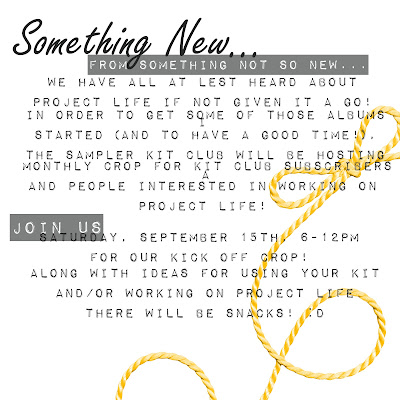 Something New...
FROM SOMETHING NOT SO NEW...
WE HAVE ALL AT LEST HEARD ABOUT
PROJECT LIFE IF NOT GIVEN IT A GO!
IN ORDER TO GET SOME OF THOSE ALBUMS
STARTED (AND TO HAVE A GOOD TIME!).
THE SAMPLER KIT CLUB WILL BE HOSTING
A
MONTHLY CROP FOR KIT CLUB SUBSCRIBERS
AND PEOPLE INTERESTED IN WORKING ON
PROJECT LIFE!
JOIN US
SATURDAY, SEPTEMBER 15TH, 6-12PM
FOR OUR KICK OFF CROP!
ALONG WITH IDEAS FOR USING YOUR KIT
AND/OR WORKING ON PROJECT LIFE
THERE WILL BE SNACKS! :D